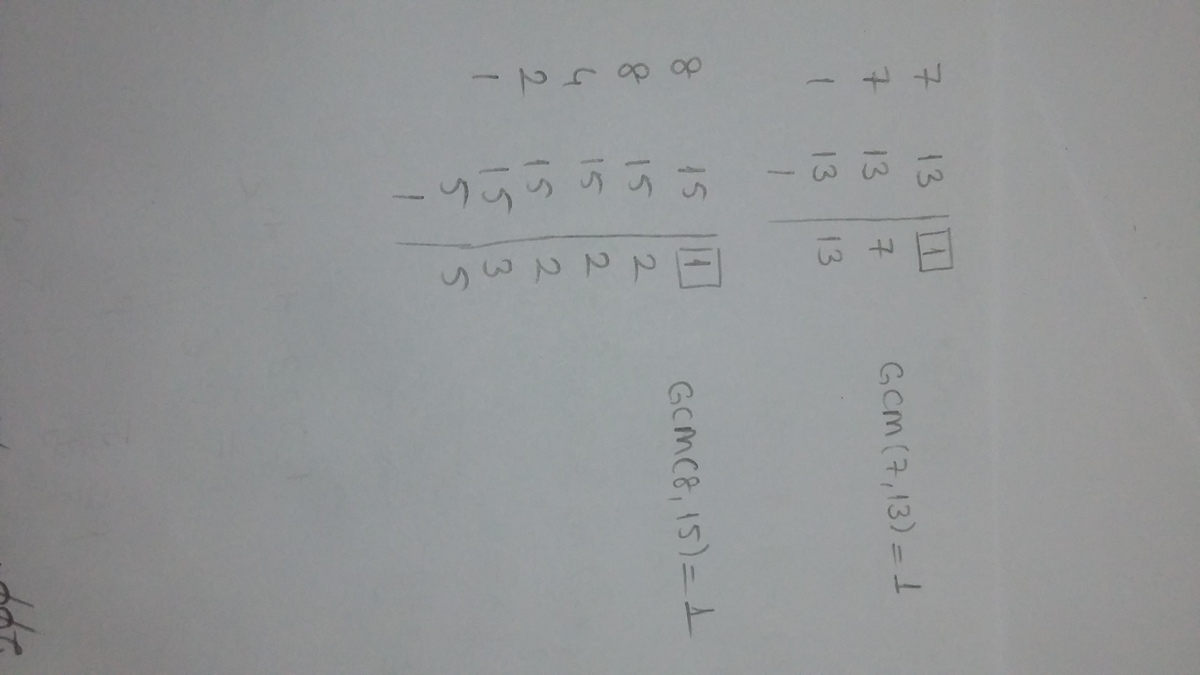 7 13 | 1
7 13 | 7 Gcm(7,13)=1
1 13 | 13
1 |
8 15 | 1 Gcm(8,15)=1
8 15 | 2
4 15 | 2
2 15 | 2
1 15 | 3
5 | 5
1 |